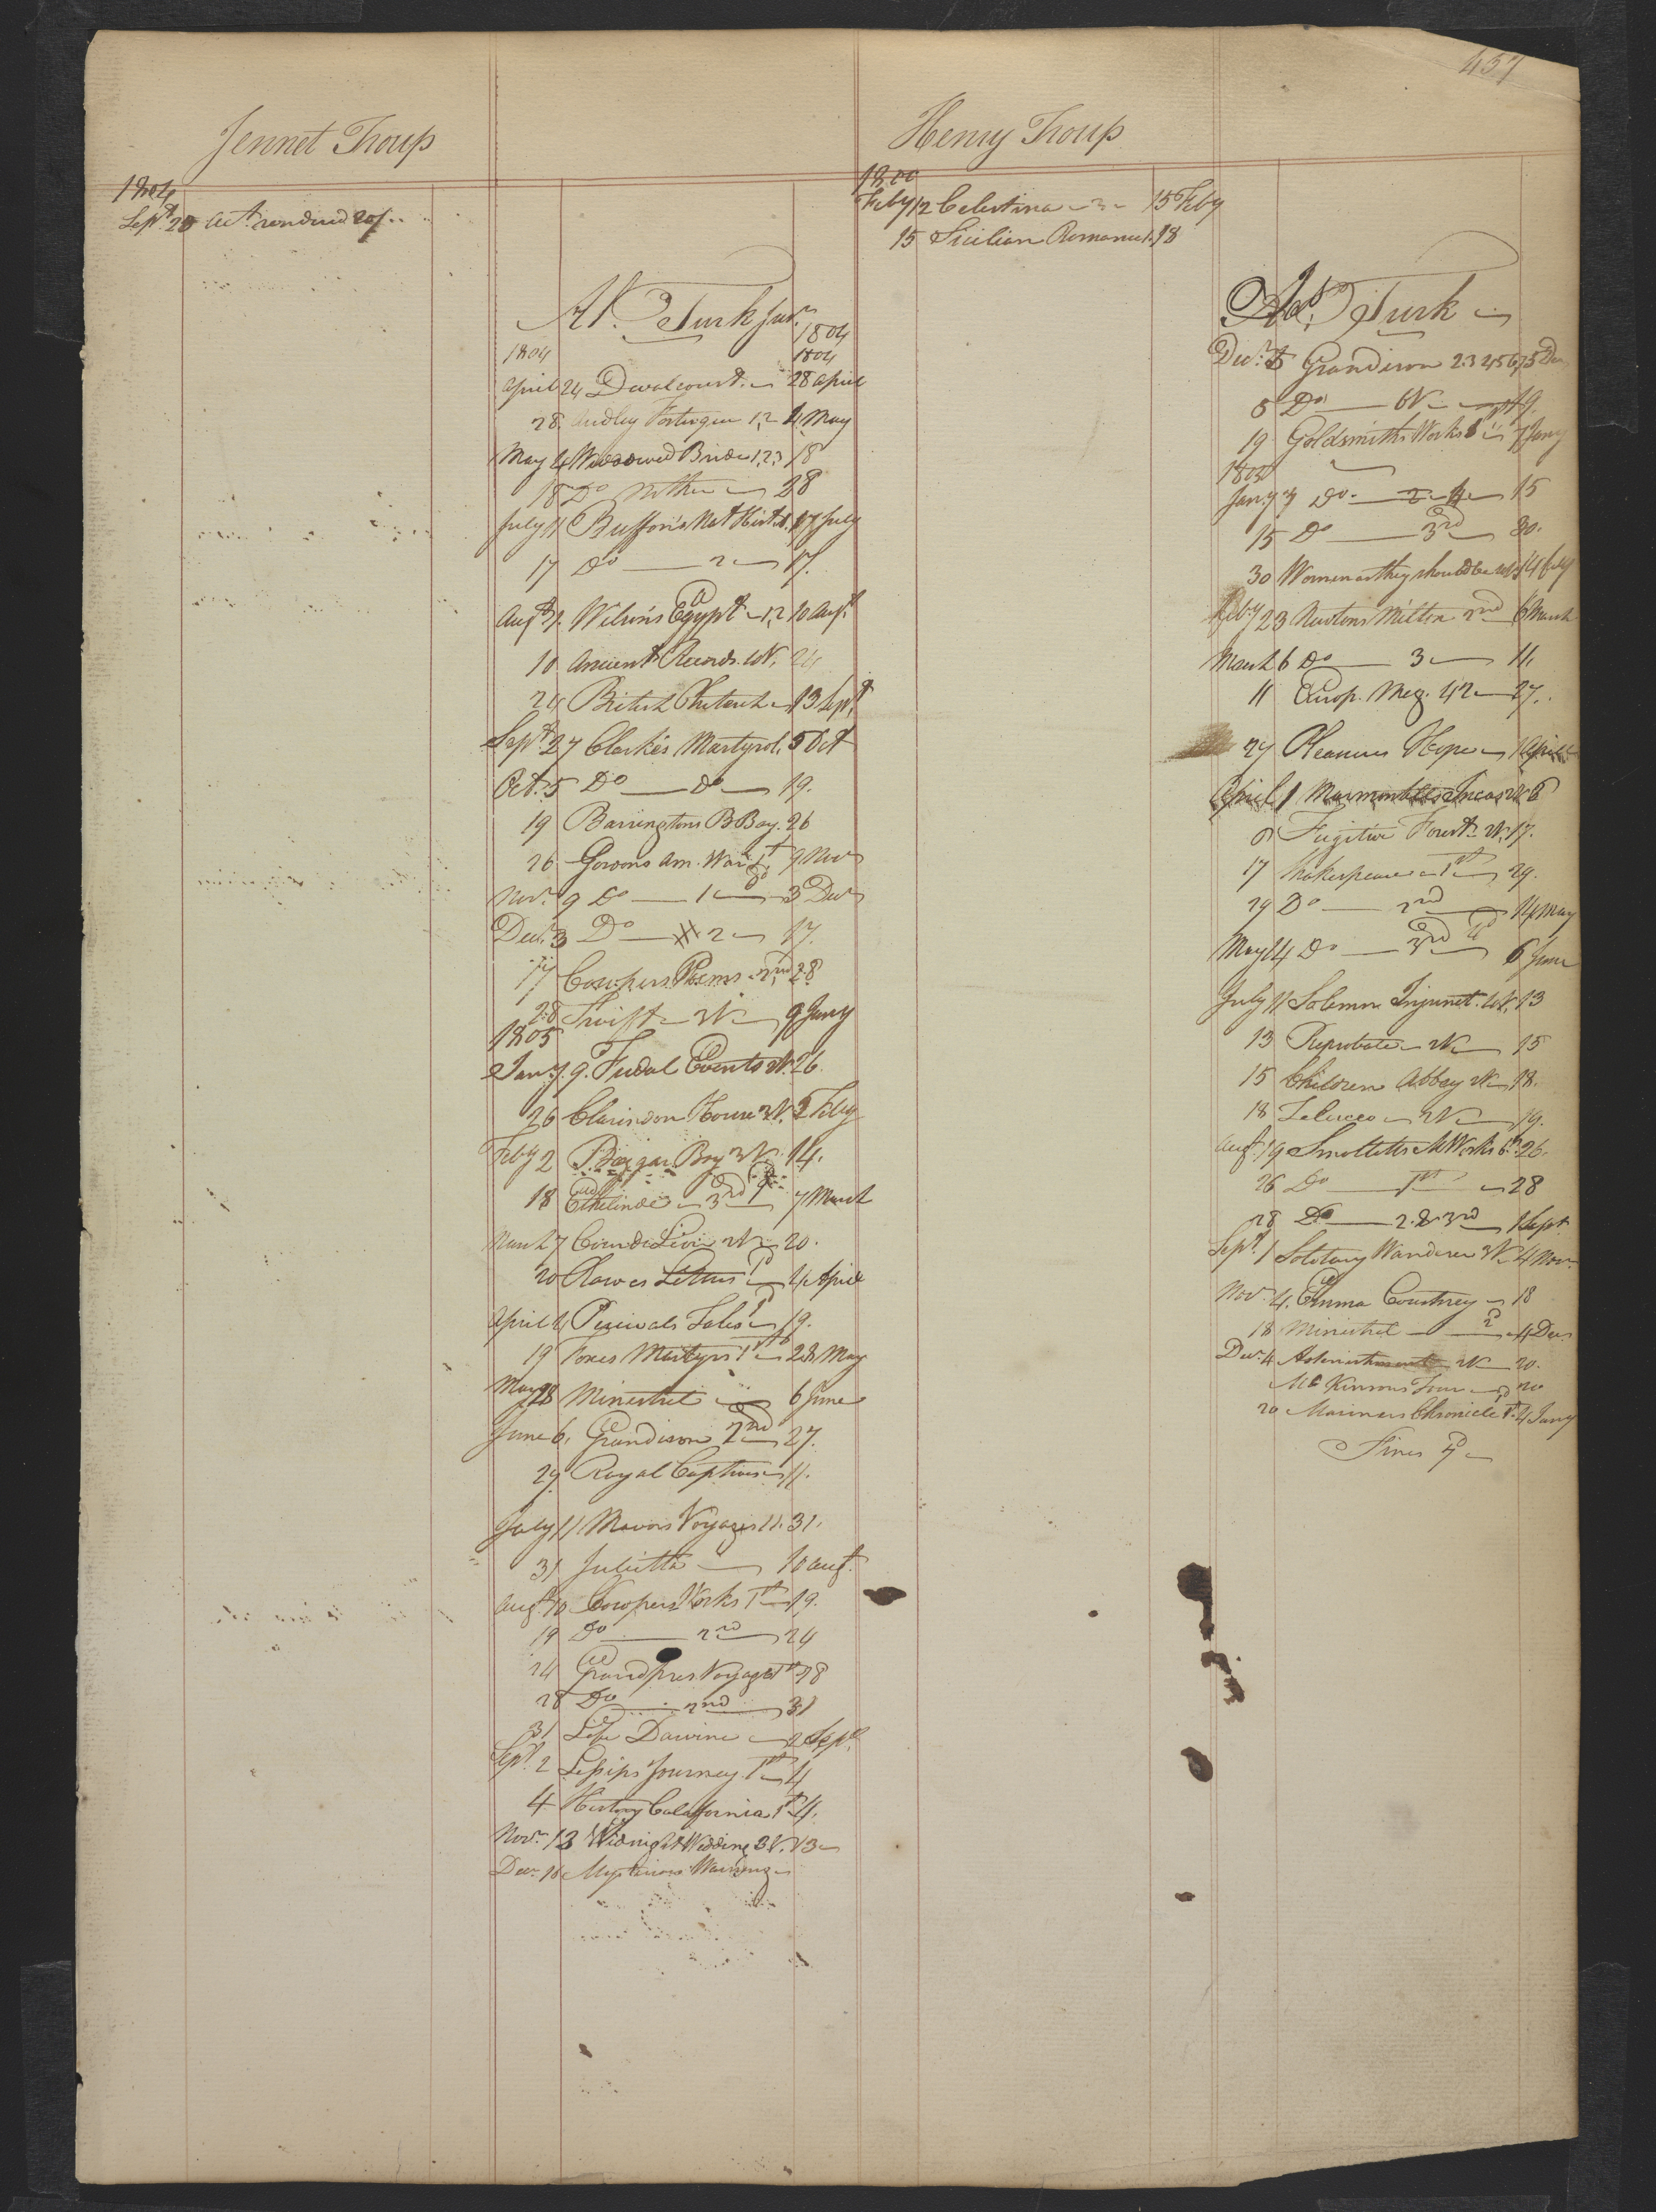 457
Jennet Troup
1804
Sept. 20 acct. rendered 20/..
Ad. Turk Junr.
1804
1804 1804
April 24 Dwalcourt. 28 april
28 Audley Fortesque 1,2 4 May
May 4 Widowed Bride 1,2,3 18
18 Do Mother 28
July 11 Buffon's Nat Hist. 1. 17 July
17 Do 2 17.
Augt. 7. Wilson's Egypt 1,2 10 Augt.
10 Ancient Records. 4V. 24
24 British Plutarch 13 Sept.
Sept. 27 Clarke's Martyrol. 5 Oct
Oct. 5 Do Do 19.
19 Barringtons B Bay. 26
26 Gordons Am. War 1st 9 Nov
Nov. 9 Do 1 3 Decr
Decr. 3 Do 2 17.
17 Cowpers Poems 2nd 28
28 Swift 2V 9 Jany
1805
Jany. 9. Fudal Events 2V. 26.
26 Clarindon House 3V. 2 Feby
Feby 2 Beggar Boy 3V. 14.
18 Ethelinde 3rd 7 March
March 7 Coeur de Lion 2V 20.
20 Rowes Letters 4 April
April 4 Percivals Tales 19.
19 Foxes Martyrs 1st 28 May
May 28 Minestrel 6 June
June 6. Grandison 2nd 27.
29 Royal Captives 11.
July 11 Mavors Voyages 11. 31.
31 Julietta 10 augt.
Augt. 10 Cowpers Works 1st 19.
19 Do 2nd 24
24 Grandpres Voyages 1st 28
28 Do 2nd 31
31 Life Darwine 2 Sept.
Sept. 2 Lessips Journey 1st 4
4 History California 1st 4.
Nov. 13 Midnight Wedding 3V. 13
Decr. 16 Mysterious Warning
Henry Troup
1800
Feby 12 Celestina 3 15 Feby
15 Sicilian Romance 1. 18
Ad. Turk
Decr. 5 Grandison 2.3 4,5 6,7 5 Decr
5 Do 6V 19.
19 Goldsmiths Works 7 Jany
1805
Jany. 7 Do. 2 15
15 Do 3rd 30.
30 Women as they should be 14 feby
Feby 23 Newtons Milton 2nd 6 March
March 6 Do 3 11.
11 Europ. Mag. 42 27.
27 Pleasures Hope 1 April
April 1 Marmontells Incas 2V 6
6 Fugitive Forest 2V. 17.
17 Shakespeare 1st 29.
29 Do 2nd 14 May
May 14 Do 3rd 6 June
July 11 Solemn Injunct. 4V. 13
13 Reprobate 2V 15
15 Children Abbey 2V 18.
18 Zelucco 2V 19.
Augt. 19 Smolletts M Works 6. 26.
26 Do 1st 28
28 Do 2. & 3rd 1 Sept
Sept. 1 Solotary Wanderer 3V 4 Nov.
Nov. 4. Emma Courtney 18
18 Minestrel 4 Decr
Decr. 4 Astonishment 2V 20.
McKinsons Tour 20
20 Mariners Chronicle 1st. 4 Jany
Fines